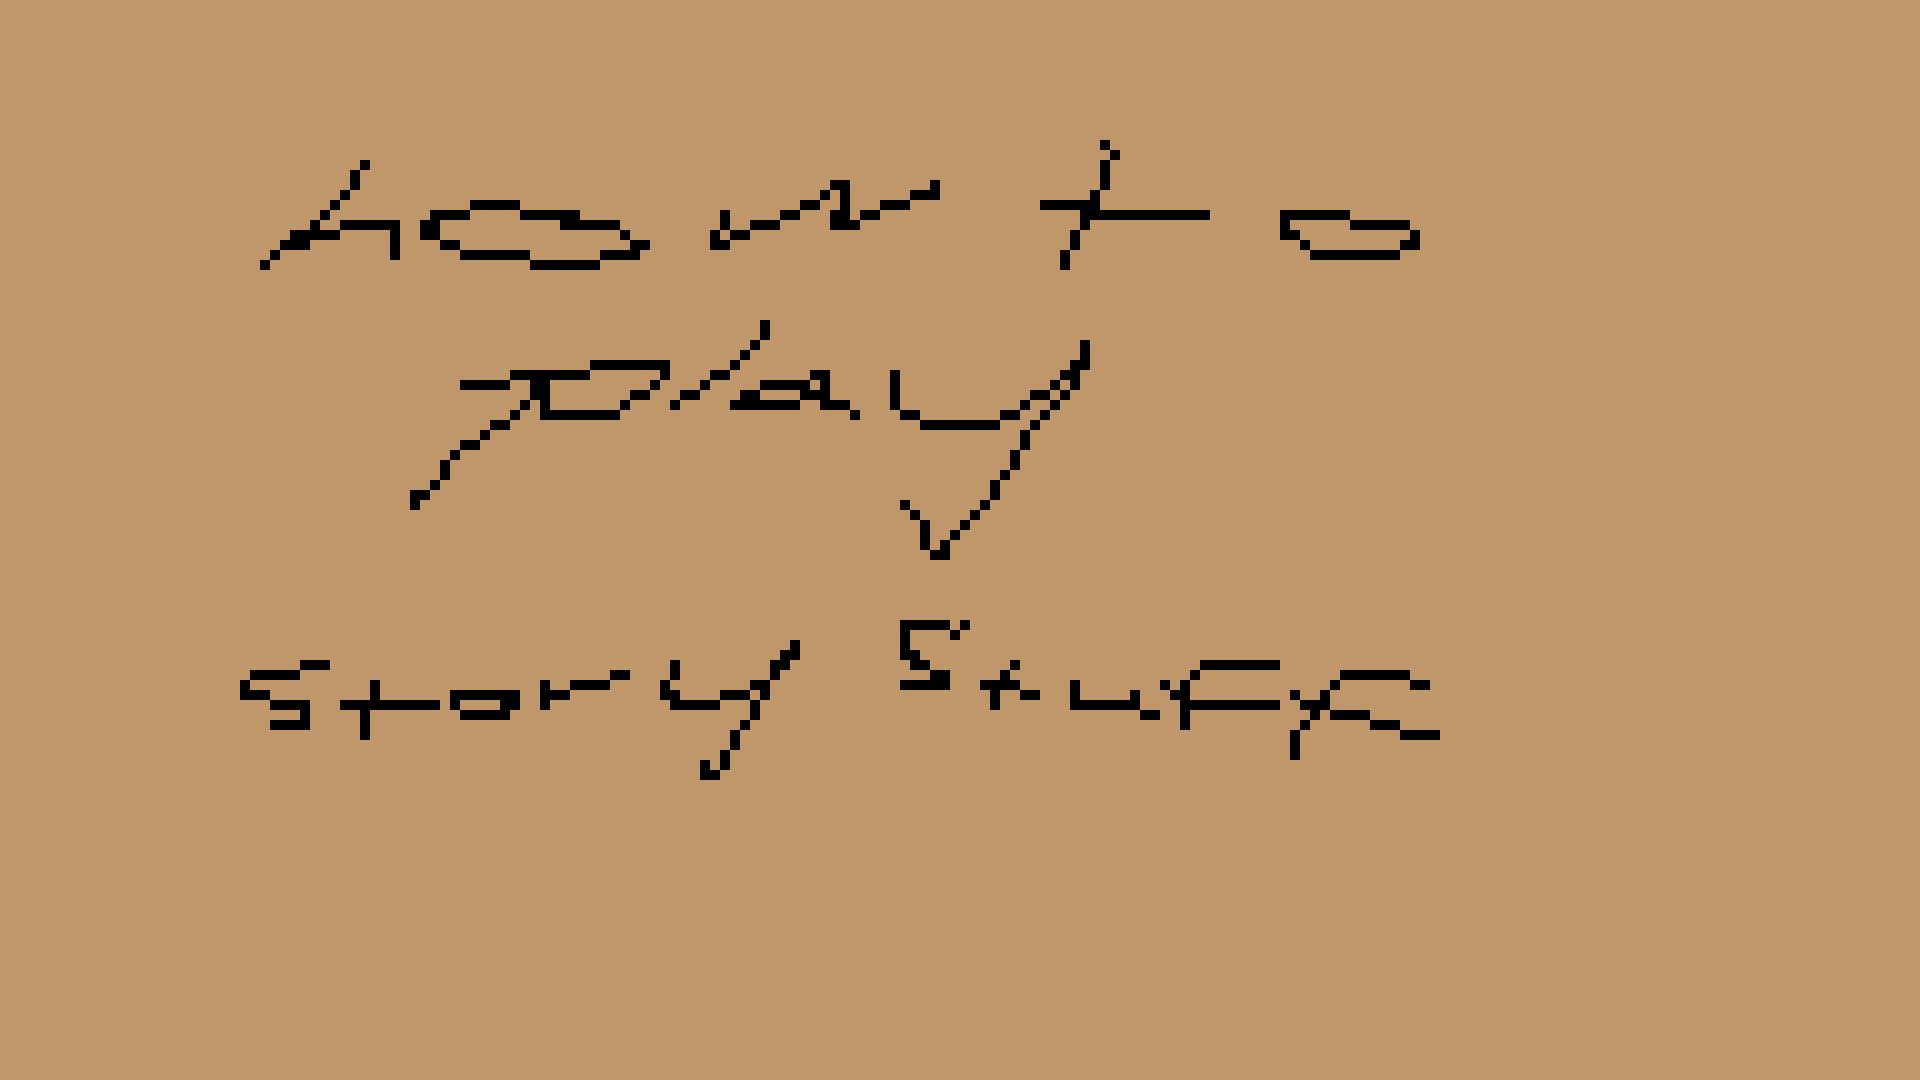 how to
play
story stuff